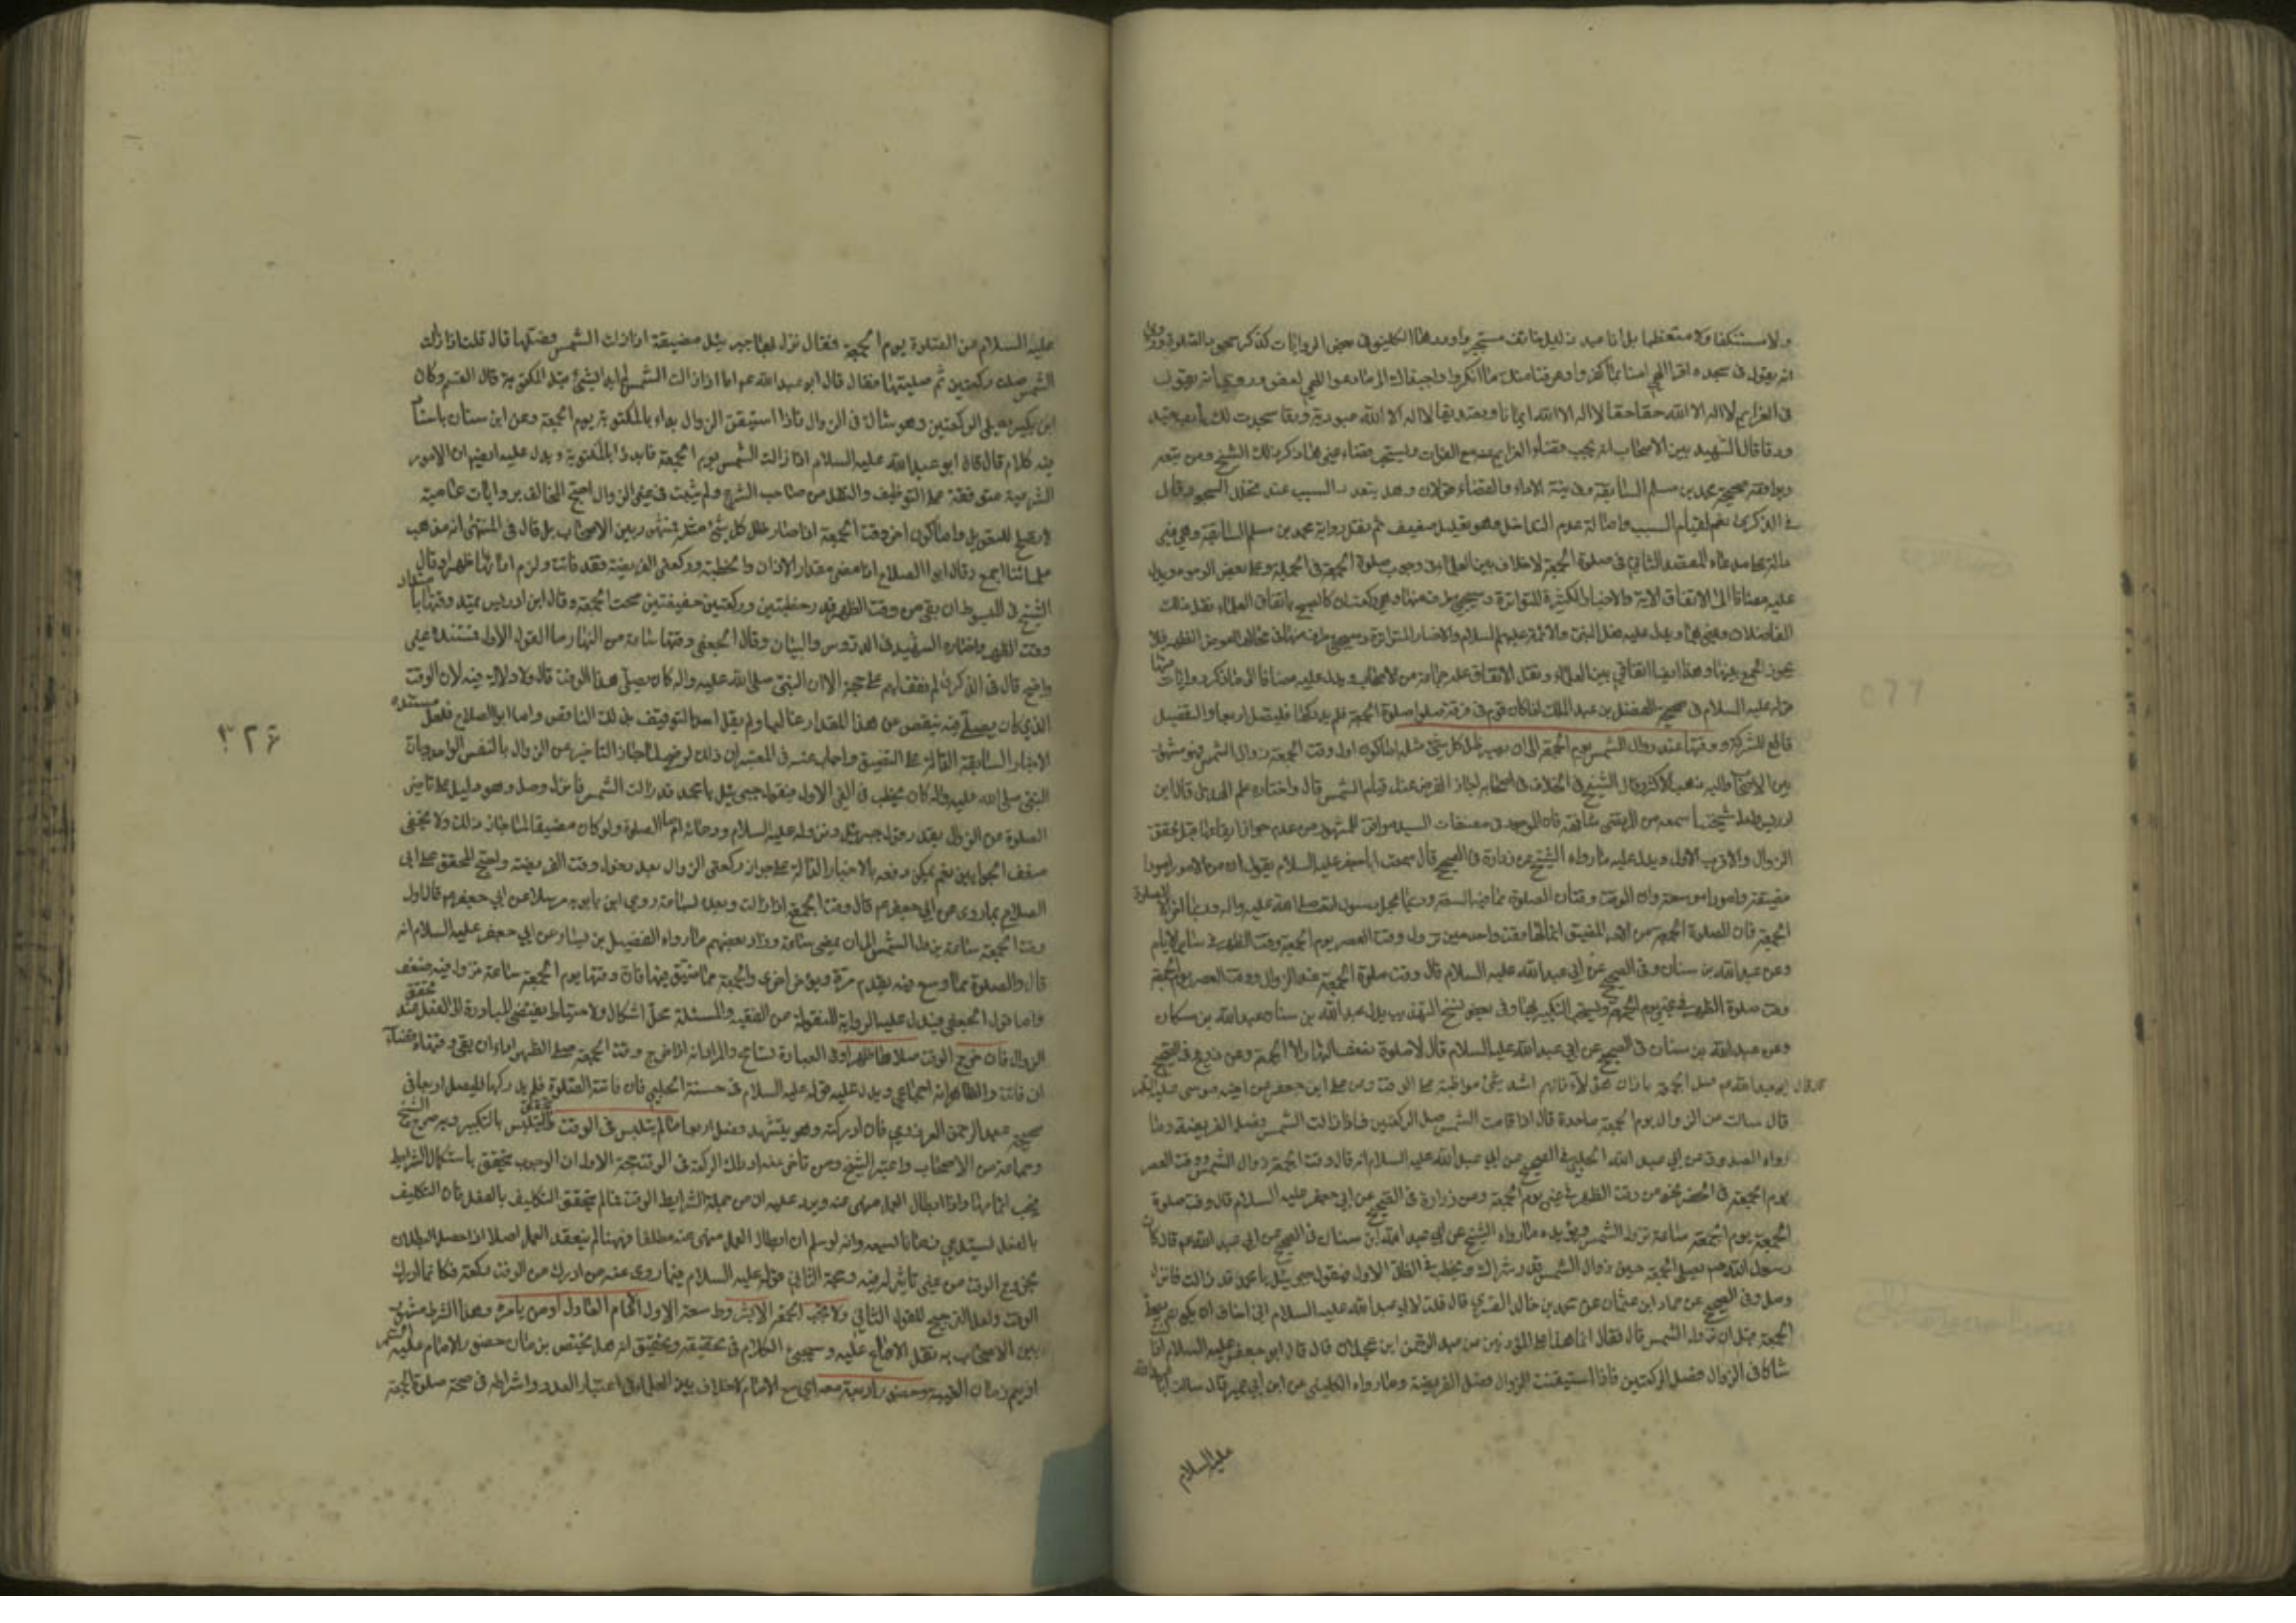 ولا مستنكفا ولا متعظما بل انا عبد ذليل خائف مستجير واورد هذا الكليني في بعض الروايات كذكر سجود الصلوة وروي
انه يقول في سجده اقرا الهي امنا بما كفروا وعرفنا منك ما انكروا واجبناك الى ما دعوا الهي لعفو وروي انه يقول
في العزايم لا اله الا الله حقا حقا لا اله الا الله ايمانا وتصديقا لا اله الا الله عبودية ورقا سجدت لك يا رب تعبد
ورقا قال الشهيد بين الاصحاب انه يجب قضاء العزايم مع الفوات ويستحب قضاء غيرها ذكر ذلك الشيخ ومن تبعه
ويوافقه صحيحة محمد بن مسلم السابقة وفي نية الاداء والقضاء قولان وهل يتعدد السبب عند تخلل السجود قال
في الذكرى نعم لقيام السبب واصالة عدم التداخل وهو تعليل ضعيف ثم نقل رواية محمد بن مسلم السابقة وهي
المقصد الثاني في صلوة الجمعة لا خلاف بين العلماء في وجوب صلوة الجمعة في الجملة وعلى بعض الوجوه ويدل
عليه مضافا الى الاتفاق الاية والاخبار الكثيرة المتواترة وسيجيء طرف منها وهي ركعتان كالصبح باتفاق العلماء نقل ذلك
الفاضلان وغيرهما ويدل عليه فعل النبي والائمة عليهم السلام والاخبار المتواترة وسيجيء طرف منها عوض الظهر فلا
يجوز الجمع بينهما وهذا ايضا اتفاقي بين العلماء ونقل الاتفاق عليه جماعة من الاصحاب ويدل عليه مضافا الى ما ذكر روايات منها
قوله عليه السلام في صحيح الفضل بن عبد الملك اذا كان قوم في قرية صلوا صلوة الجمعة
ووقتها عند زوال الشمس يوم الجمعة الى ان يصير ظل كل شيء مثله اما كون اول وقت الجمعة زوال الشمس فهو مشهور
بين الاصحاب واليه ذهب الاكثر وقال الشيخ في الخلاف وفي اصحابنا من اجاز الفرض عند قيام الشمس قال واختاره علم الهدى قال ابن
ادريس ولعل شيخنا سمعه من المرتضى مشافهة فان الموجود في مصنفات السيد موافق للمشهور من عدم جواز ايقاعها قبل تحقق
الزوال والاقرب الاول ويدل عليه ما رواه الشيخ عن زرارة في الصحيح قال سمعت ابا جعفر عليه السلام يقول ان من الامور امورا
مضيقة وامورا موسعة وان الوقت وقتان الصلوة مما فيه السعة فربما عجل رسول الله صلى الله عليه واله وربما اخر الا صلوة
الجمعة فان الصلوة الجمعة من الامر المضيق انما لها وقت واحد حين تزول ووقت العصر يوم الجمعة وقت الظهر في سائر الايام
وعن عبد الله بن سنان في الصحيح عن ابي عبد الله عليه السلام قال وقت صلوة الجمعة عند الزوال ووقت العصر يوم الجمعة
وقت صلوة الظهر في غير يوم الجمعة ويستحب التكبير بها وفي بعض نسخ التهذيب بدل عبد الله بن سنان عبد الله بن مسكان
وعن عبد الله بن سنان في الصحيح عن ابي عبد الله عليه السلام قال لا صلوة نصف النهار الا الجمعة وعن ذريح في الصحيح
قال قال ابو عبد الله صل الجمعة باذان هؤلاء فانهم اشد شيء مواظبة على الوقت وعن علي بن جعفر عن اخيه موسى عليه السلام
قال سالت عن الزوال يوم الجمعة ما حده قال اذا قامت الشمس صل الركعتين فاذا زالت الشمس فصل الفريضة وما
رواه الصدوق عن ابي عبد الله الحلبي في الصحيح عن ابي عبد الله عليه السلام انه قال وقت الجمعة زوال الشمس ووقت العصر
يوم الجمعة في الحضر نحو من وقت الظهر في غير يوم الجمعة وعن زرارة في الصحيح عن ابي جعفر عليه السلام قال وقت صلوة
الجمعة يوم الجمعة ساعة تزول الشمس ويؤيده ما رواه الشيخ عن عبد الله بن سنان في الصحيح عن ابي عبد الله قال كان
رسول الله يصلي الجمعة حين تزول الشمس قدر شراك ويخطب في الظل الاول فيقول جبرئيل يا محمد قد زالت فانزل
وصل وفي الصحيح عن حماد بن عثمان عن محمد بن خالد القسري قال قلت لابي عبد الله عليه السلام اني اخاف ان يكون نصلي
الجمعة قبل ان تزول الشمس قال فقال انما هذا على المؤذنين عن عبد الرحمن ابن عجلان قال قال ابو جعفر عليه السلام اذا كنت
شاكا في الزوال فصل الركعتين فاذا استيقنت الزوال فصل الفريضة وما رواه الكليني عن ابن ابي عمير قال سالت ابا عبد الله
عليه السلام
عليه السلام عن الصلوة يوم الجمعة فقال نزل بها جبرئيل مضيقة اذا زالت الشمس فصلها قال قلت اذا زالت
الشمس صليت ركعتين ثم صليتها فقال قال ابو عبد الله اما انا اذا زالت الشمس لم ابدا بشيء قبل المكتوبة قال القسم وكان
ابن بكير يصلي الركعتين وهو شاك في الزوال فاذا استيقن الزوال بداء بالمكتوبة يوم الجمعة وعن ابن سنان باسناد
فيه كلام قال قال ابو عبد الله عليه السلام اذا زالت الشمس يوم الجمعة فابدا بالمكتوبة ويدل عليه ايضا ان الامور
الشرعية متوقفة على التوظيف والنقل من صاحب الشرع ولم يثبت في غير الزوال احتج المخالف بروايات عامية
لا تصلح للتعويل واما كون اخر وقت الجمعة اذا صار ظل كل شيء مثله فمشهور بين الاصحاب بل قال في المنتهى انه مذهب
علمائنا اجمع وقال ابو الصلاح اذا مضى مقدار الاذان والخطبة وركعتي الفريضة فقد فاتت ولزم اداؤها ظهرا وقال
الشيخ في المبسوط ان بقى من وقت الظهر قدر خطبتين وركعتين خفيفتين صحت الجمعة وقال ابن ادريس يمتد وقتها بامتداد
وقت الظهر واختاره الشهيد في الدروس والبيان وقال الجعفي وقتها ساعة من النهار اما القول الاول فمستنده غير
واضح قال في الذكرى لم نقف لهم على حجة الا ان النبي صلى الله عليه واله كان يصلي هذا الوقت قال ولا دلالة فيه لان الوقت
الذي كان يصلي فيه ينقص عن هذا المقدار غالبا ولم يقل احد بالتوقيت بذلك الناقص واما ابو الصلاح فلعل مستنده
الاخبار السابقة الدالة على التضييق واجاب عنه في المعتبر ان ذلك لو صح لما جاز التاخير عن الزوال بالنفس الواحد وبان
النبي صلى الله عليه واله كان يخطب في الفي الاول فيقول جبرئيل يا محمد قد زالت الشمس فانزل وصل وهو دليل على تاخير
الصلوة عن الزوال بقدر قول جبرئيل ونزوله عليه السلام ودعائه امام الصلوة ولو كان مضيقا لما جاز ذلك ولا يخفى
ضعف الجوابين نعم يمكن دفعه بالاخبار الدالة على جواز ركعتي الزوال بعد دخول وقت الفريضة واحتج المحقق على ابي
الصلاح بما روى عن ابي جعفر قال وقت الجمعة اذا زالت وبعده بساعة روى ابن بابويه مرسلا عن ابي جعفر قال اول
وقت الجمعة ساعة تزول الشمس الى ان يمضي ساعة وزاد بعضهم ما رواه الفضيل بن يسار عن ابي جعفر عليه السلام انه
قال والصلوة مما وسع فيه يقدم مرة ويؤخر اخرى والجمعة مما ضيق فيها فان وقتها يوم الجمعة ساعة تزول فيه ضعف
واما قول الجعفي فيدل عليه الرواية المنقولة عن الفقيه والمسئلة محل اشكال والاحتياط يقتضي المبادرة الى الفعل عند تحقق
الزوال فان خرج الوقت صلاها ظهرا وفي العبارة تسامح والمراد انه اذا خرج وقت الجمعة صلى الظهر اداء ان بقى وقته وقضاء
ان فاتت والظاهر انه اجماعي ويدل عليه قوله عليه السلام في حسنة الحلبي فان فاتته الصلوة فلم يدركها فليصل اربعا في
صحيحة عبد الرحمن العزرمي فان ادركته وهو يتشهد فصل اربعا ما لم يتلبس في الوقت بالتكبير وبه صرح الشيخ
وجماعة من الاصحاب واعتبر الشيخ ومن تاخر عنه ادراك الركعة في الوقت حجة الاول ان الوجوب يتحقق باستكمال الشرايط
فيجب اتمامها واذا ابطال العمل منهى عنه ويرد عليه ان من جملة الشرايط الوقت فما لم يتحقق التكليف بالفعل فان التكليف
بالفعل يستدعي زمانا ليسعه وانه لو سلم ان ابطال العمل منهى عنه مطلقا فههنا لم ينعقد العمل اصلا اذ احتمل البطلان
بخروج الوقت من غير تاثير له فيه وحجة الثاني قوله عليه السلام فيما روى عنه من ادرك من الوقت ركعة فكانما ادرك
الوقت ولعل الترجيح للقول الثاني ولا تجب الجمعة الا بشروط سبعة الاول الامام العادل او من يامره وهذا الشرط مشهور
بين الاصحاب بل نقل الاجماع عليه وسيجيء الكلام في تحقيقه وتحقيق انه هل يختص بزمان حضور الامام عليه السلام
او يعم زمان الغيبة وحضور اربعة معه اي مع الامام لا خلاف بين العلماء في اعتبار العدد واشتراطه في صحة صلوة الجمعة
٣٢۶